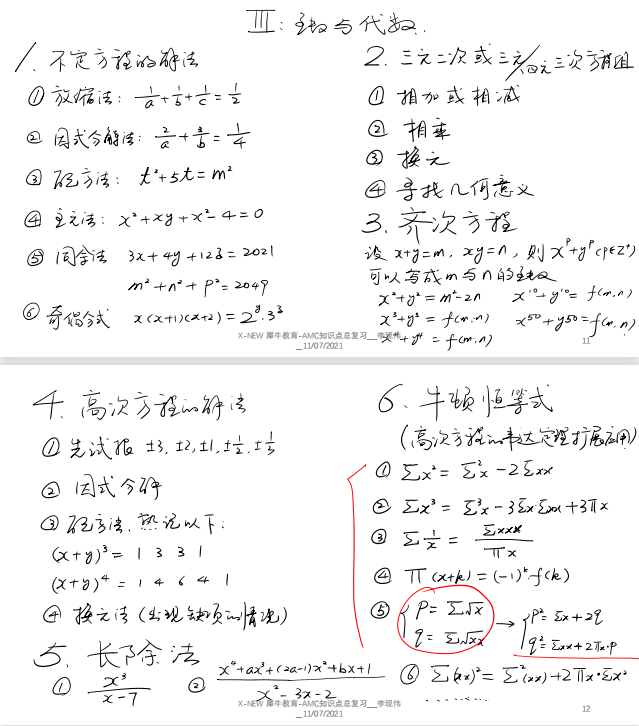 III: 主数与代数.
1. 不定方程的解法
① 放缩法: 1/a + 1/b + 1/c = 1/2
② 因式分解法: 2/a + 3/b = 1/4
③ 配方法: t²+5t = m²
④ 主元法: x²+xy+x²-4=0
⑤ 同余法 3x+4y+123=2021
m²+n²+p²=2049
⑥ 奇偶分式 x(x+1)(x+2)=2^y·3^3
2. 三元二次或三元/四元三次方程组
① 相加或相减
② 相乘
③ 换元
④ 寻找几何意义
3. 齐次方程
设 x+y=m, xy=n, 则 x^p+y^p (p∈Z⁺)
可以写成m与n的
x²+y²=m²-2n x^10+y^10=f(m,n)
x³+y³=f(m,n) x^50+y50=f(m,n)
x⁴+y⁴=f(m,n)
X-NEW 犀牛教育-AMC知识点总复习__李现伟_11/07/2021
11
4. 高次方程的解法
① 先试根 ±3, ±2, ±1, ±1/2, ±1/3
② 因式分解
③ 配方法, 熟记以下:
(x+y)³ = 1 3 3 1
(x+y)⁴ = 1 4 6 4 1
④ 换元法 (出现缺项的情况)
5. 长除法
① x³/(x-7) ② (x⁴+ax³+(2a-1)x²+bx+1)/(x²-3x-2)
6. 牛顿恒等式
(高次方程的韦达定理扩展应用)
① Σx² = Σ²x - 2Σxx
② Σx³ = Σ³x - 3Σx·Σxx + 3πx
③ Σ1/x = Σxxx/πx
④ π(x+k) = (-1)^k·f(k)
⑤ { p = Σ√x q = Σ√xx → { p² = Σx+2q q² = Σxx+2πx·p
⑥ Σ(xx)² = Σ²(xx)+2πx·Σx²
........
X-NEW 犀牛教育-AMC知识点总复习__李现伟_11/07/2021
12